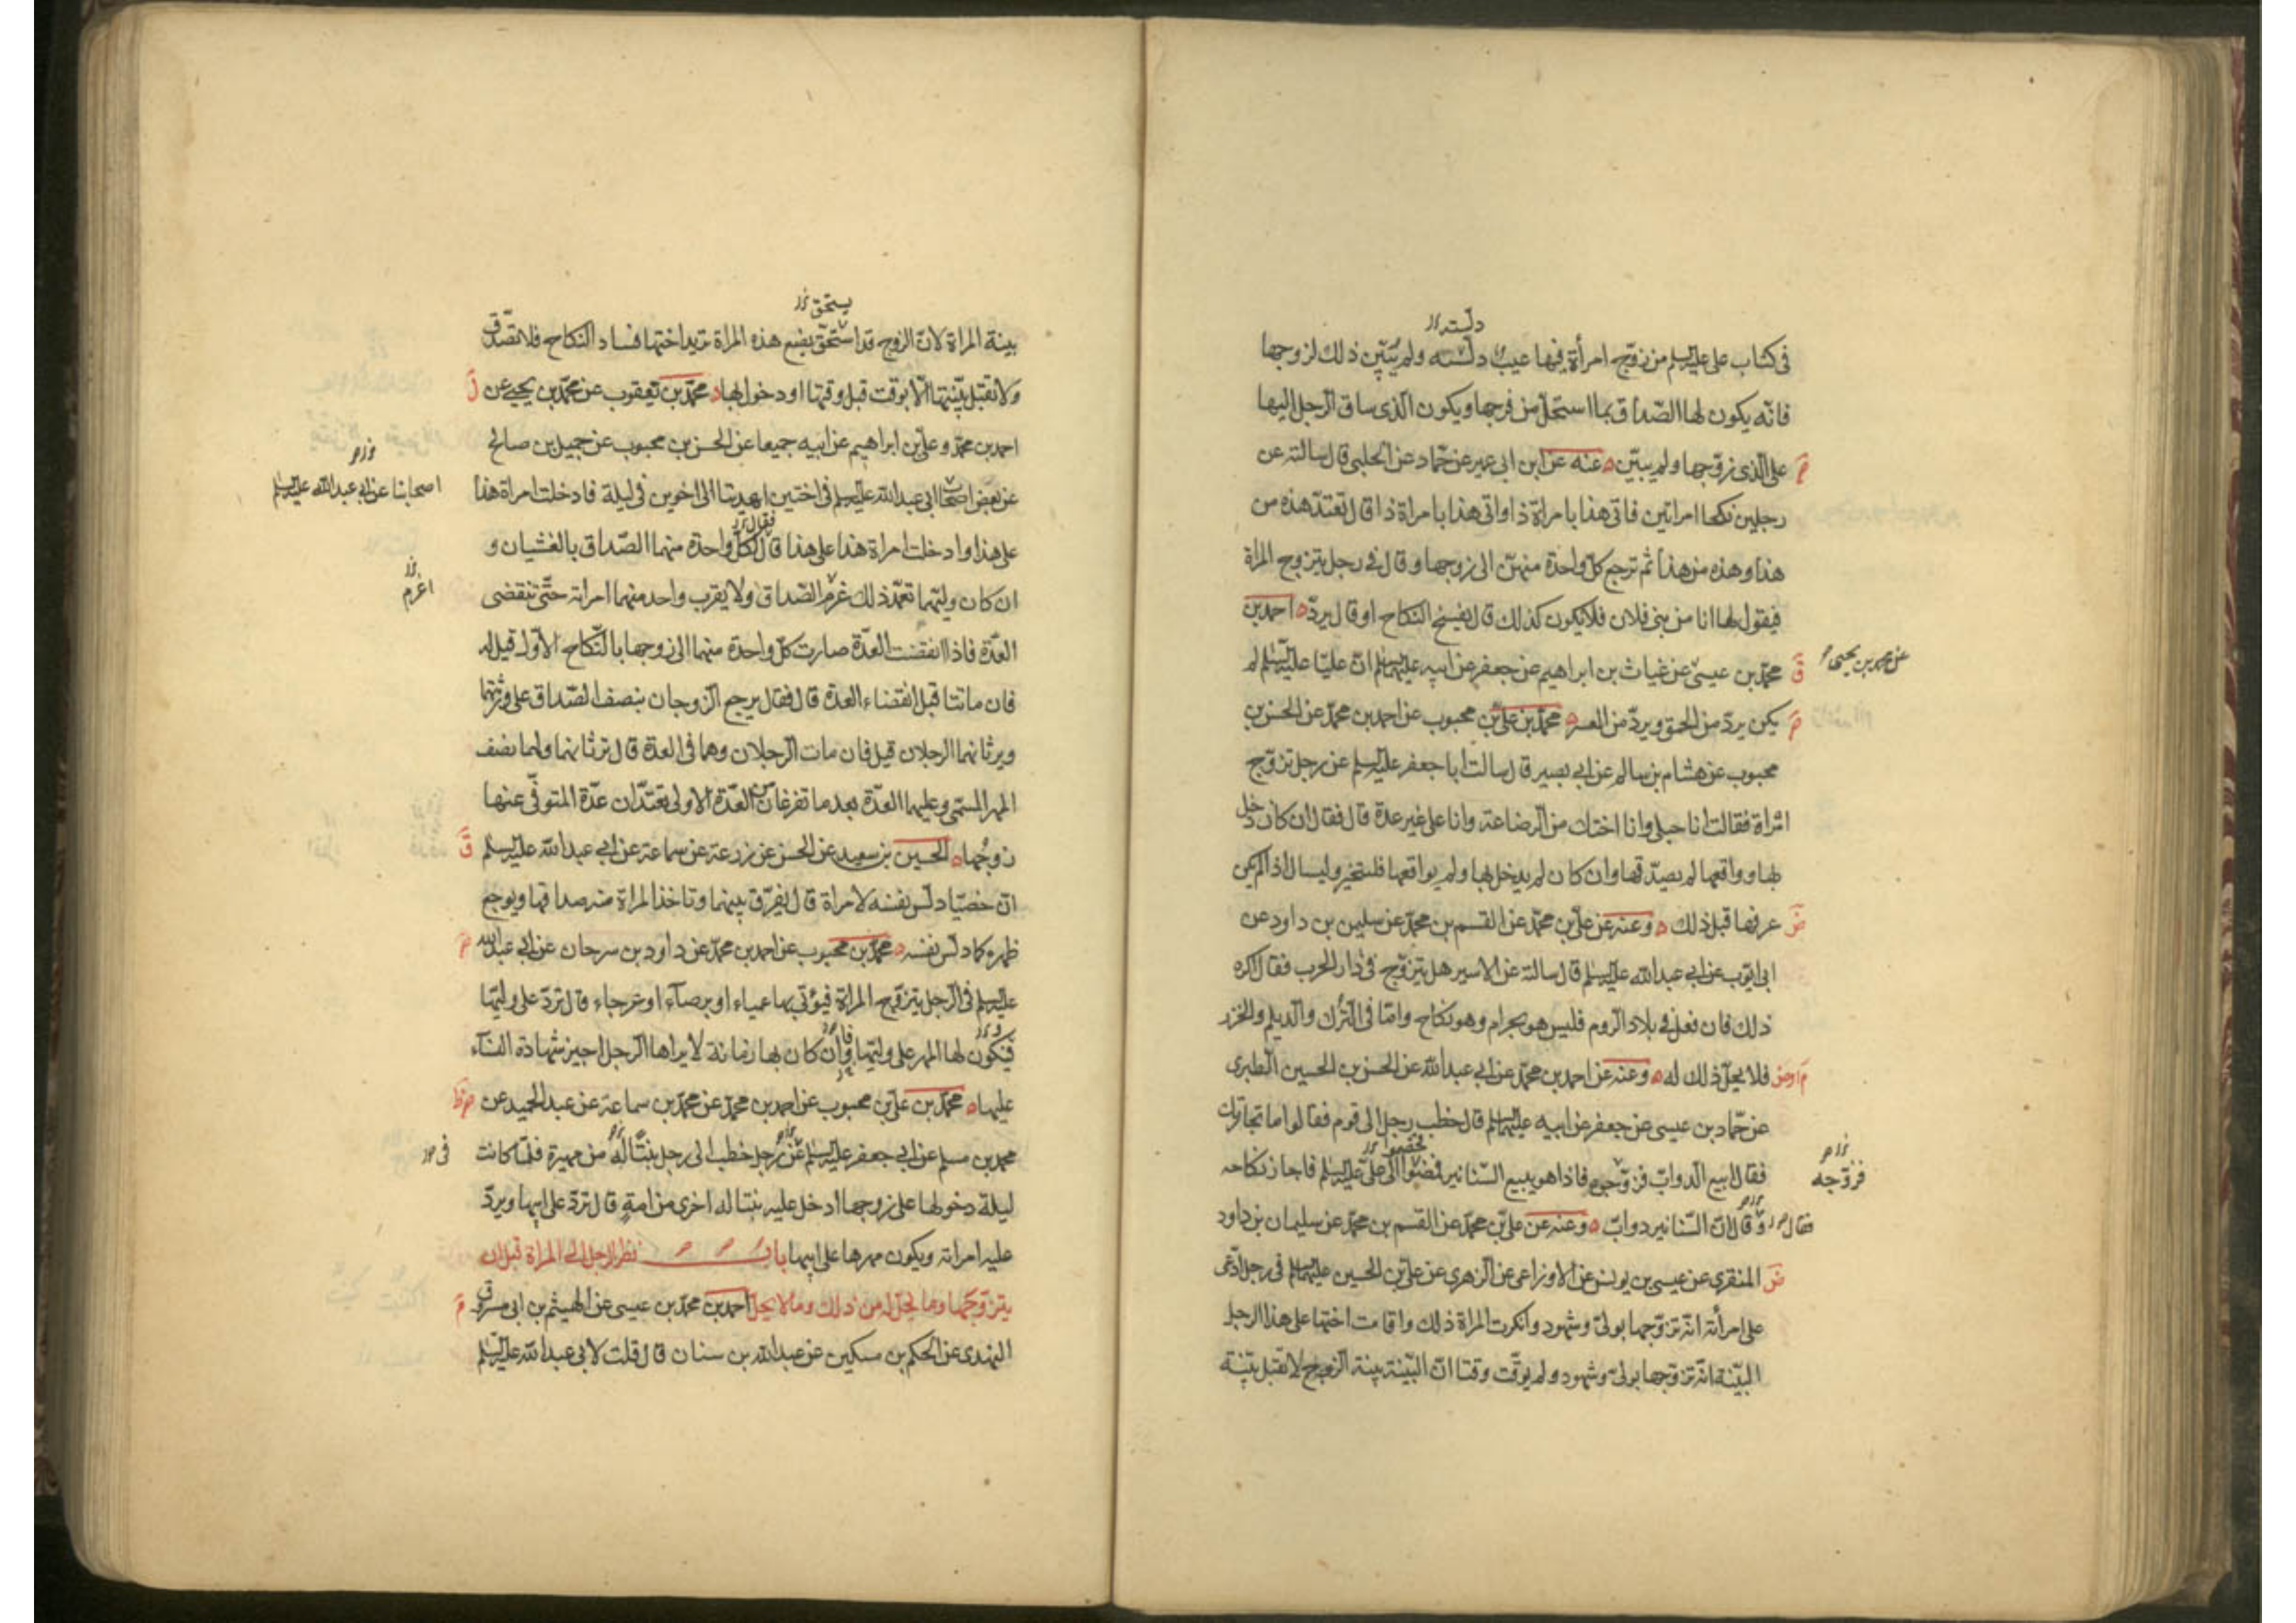 دلسته
فى كتاب على عليه السلم من زوّج امرأة فيها عيب دلّسته ولم يتبيّن ذلك لزوجها
فانّه يكون لها الصّداق بما استحلّ من فرجها ويكون الّذى ساق الرّجل اليها
على الّذى زوّجها ولم يبيّن ه عنه عن ابن ابى عمير عن حمّاد عن الحلبى قال سالته عن
رجلين نكحا امراتين فاتى هذا بامراة ذا واتى هذا بامراة ذا قال تعتدّ هذه من
هذا وهذه من هذا ثم ترجع كلّ واحدة منهنّ الى زوجها وقال فى رجل يتزوج المراة
فيقول لها انا من بنى فلان فلا يكون كذلك قال يفسخ النكاح او قال يردّ ه احمد بن
عن محمد بن يحيى
محمّد بن عيسى عن غياث بن ابراهيم عن جعفر عن ابيه عليهما السلم انّ عليّا عليه السّلم لم
يكن يردّ من الحمق ويردّ من العسر ه محمّد بن علىّ بن محبوب عن احمد بن محمّد عن الحسن بن
محبوب عن هشام بن سالم عن ابى بصير قال سالت ابا جعفر عليه السلم عن رجل تزوّج
امراة فقالت انا حبلى وانا اختك من الرّضاعة وانا على غير عدة قال فقال ان كان دخل
بها وواقعها لم يصدّقها وان كان لم يدخل بها ولم يواقعها فليختبر وليسال اذا لم يكن
عرفها قبل ذلك ه وعنه عن علىّ بن محمّد عن القسم بن محمّد عن سليمن بن داود عن
ابى ايّوب عن ابى عبد الله عليه السلم قال سالته عن الاسير هل يتزوّج فى دار الحرب فقال اكره
ذلك فان فعل فى بلاد الرّوم فليس هو بحرام وهو نكاح وامّا فى التّرك والدّيلم والخزر
فلا يحلّ ذلك له ه وعنه عن احمد بن محمّد عن ابى عبد الله عن الحسن بن الحسين الطبرى
عن حمّاد بن عيسى عن جعفر عن ابيه عليهما السلم قال خطب رجل الى قوم فقالوا ما تجارتك
فزوّجه
فقال ابيع الدّوابّ فزوّجوه فاذا هو يبيع السّنانير فمضوا الى علىّ عليه السلم فاجاز نكاحه
فقال
وقال انّ السّنانير دوابّ ه وعنه عن علىّ بن محمّد عن القسم بن محمّد عن سليمان بن داود
المنقرى عن عيسى بن يونس عن الاوزاعى عن الزّهرى عن علىّ بن الحسين عليهما السلم فى رجل ادّعى
على امرأة انّه تزوّجها بولىّ وشهود وانكرت المراة ذلك واقامت اختها على هذا الرجل
البيّنة انّه تزوّجها بولىّ وشهود ولم يوقّت وقتا انّ البيّنة بينة الزّوج لا تقبل بيّنة
يستحق
بينة المراة لانّ الزوج قد استحقّ بضع هذه المراة تريد اختها فساد النكاح فلا تصدّق
ولا تقبل بيّنتها الّا بوقت قبل وقتها او دخول بها ه محمّد بن يعقوب عن محمّد بن يحيى عن
احمد بن محمّد وعلىّ بن ابراهيم عن ابيه جميعا عن الحسن بن محبوب عن جميل بن صالح
اصحابنا عن ابى عبد الله عليه السلم
عن بعض اصحاب ابى عبد الله عليه السلم فى اختين اهديتا الى اخوين فى ليلة فادخلت امراة هذا
فقال
على هذا وادخلت امراة هذا على هذا قال لكلّ واحدة منهما الصّداق بالغشيان و
اغرم
ان كان وليّهما تعمّد ذلك غرم الصّداق ولا يقرب واحد منهما امراته حتّى تنقضى
العدّة فاذا انقضت العدّة صارت كلّ واحدة منهما الى زوجها بالنّكاح الاوّل قيل له
فان ماتتا قبل انقضاء العدة قال فقال يرجع الزّوجان بنصف الصّداق على ورثتهما
ويرثانهما الرجلان قيل فان مات الرّجلان وهما فى العدة قال ترثانهما ولهما نصف
المهر المسمّى وعليهما العدّة بعد ما تفرغان من العدّة الاولى تعتدّان عدّة المتوفّى عنها
زوجها ه الحسين بن سعيد عن الحسن عن زرعة عن سماعة عن ابى عبد الله عليه السلم
انّ خصيّا دلّس نفسه لامراة قال يفرّق بينهما وتاخذ المراة منه صداقها ويوجع
ظهره كما دلّس نفسه ه محمّد بن محبوب عن احمد بن محمّد عن داود بن سرحان عن ابى عبد الله
عليه السلم فى الرّجل يتزوّج المراة فيؤتى بها عمياء او برصآء او عرجاء قال تردّ على وليّها
فيكون لها المهر على وليّها وان كان بها زمانة لا يراها الرّجل اجيز شهادة النسآء
عليها ه محمّد بن علىّ بن محبوب عن احمد بن محمّد عن محمّد بن سماعة عن عبد الحميد عن
محمد بن مسلم عن ابى جعفر عليه السلم عن رجل خطب الى رجل بنتا له من مهيرة فلمّا كانت
فى
ليلة دخولها على زوجها ادخل عليه بنتا له اخرى من امة قال تردّ على ابيها ويردّ
عليه امراته ويكون مهرها على ابيها باب نظر الرجل الى المراة قبل ان
يتزوّجها وما يحلّ له من ذلك وما لا يحلّ احمد بن محمّد بن عيسى عن الهيثم بن ابى مسروق
النهدى عن الحكم بن مسكين عن عبد الله بن سنان قال قلت لابى عبد الله عليه السلم